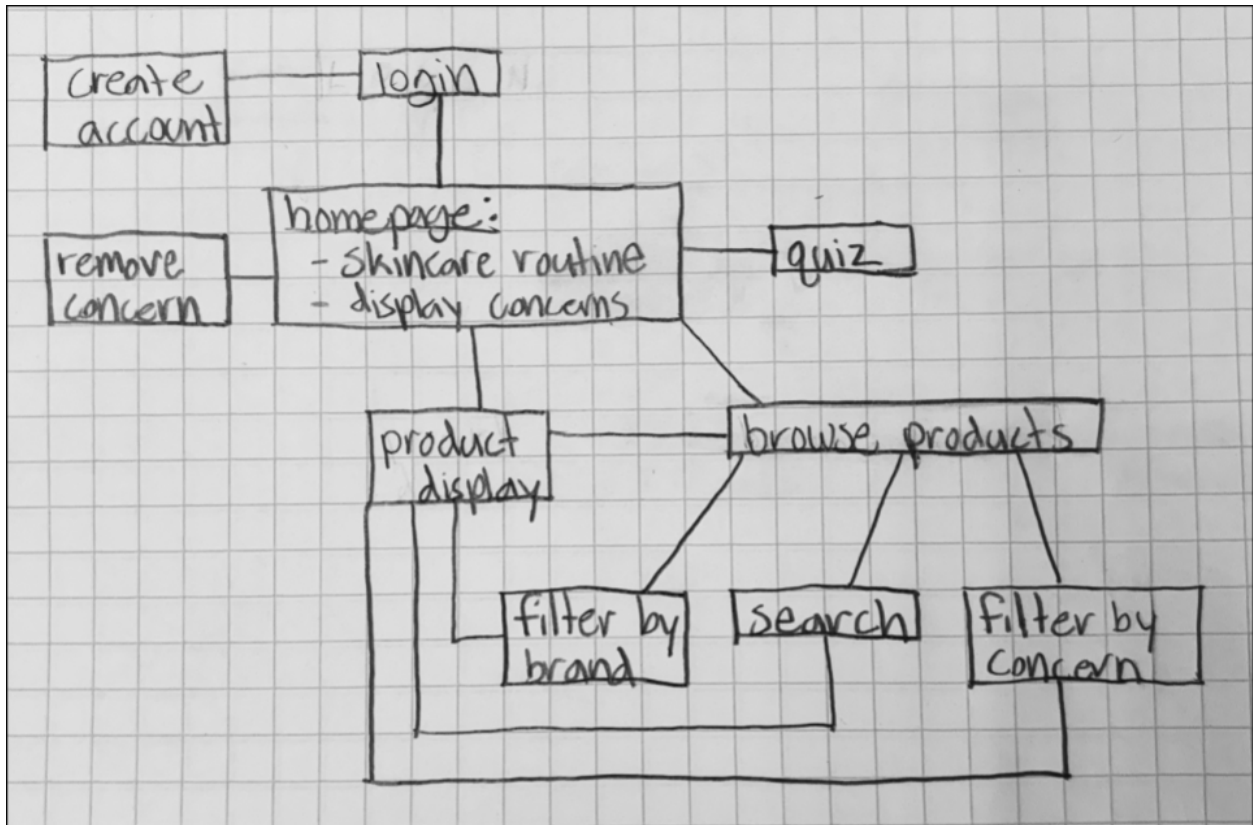 create
account
login
homepage:
- skincare routine
- display concerns
remove
concern
quiz
product
display
browse products
filter by
brand
search
filter by
concern